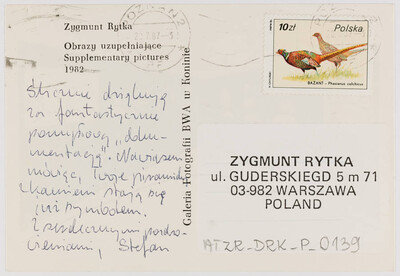 Zygmunt Rytka
Obrazy uzupełniające
Supplementary pictures
1982
Strasznie dziękuję
za fantastycznie
pomysłową "doku-
mentację". Nawiasem
mówiąc, Twoje piramidki
z kamieni stają się
już symbolem.
Z serdecznymi pozdro-
wieniami, Stefan
Galeria Fotografii BWA w Koninie
POZNAŃ 2
10 zł Polska
BAŻANT - Phasianus colchicus
ZYGMUNT RYTKA
ul. GUDERSKIEGD 5 m 71
03-982 WARSZAWA
POLAND
ATZR-DRK-P_0139